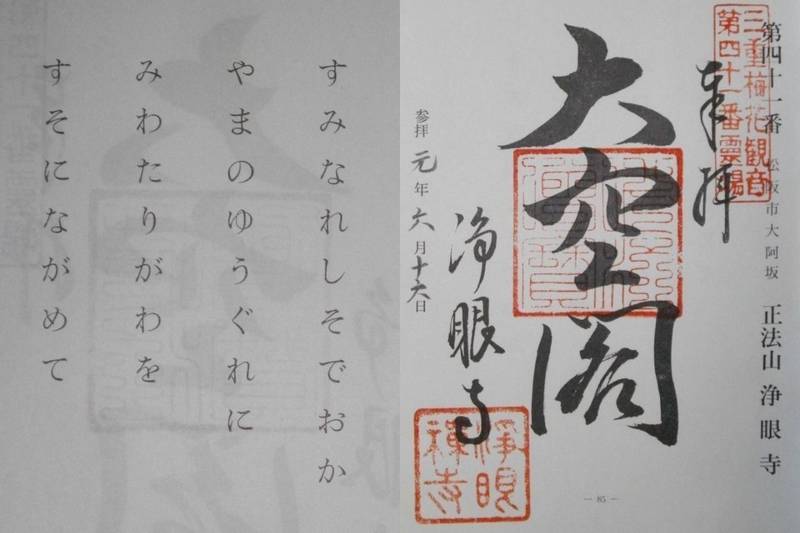 すみなれしそでおか
やまのゆうぐれに
みわたりがわを
すそにながめて
三重梅花観音
第四十一番霊場
第四十一番 松阪市大阿坂 正法山 浄眼寺
奉拝
大空閣
浄眼寺
参拝 元年 六月十六日
淨眼
禅寺
— 85 —